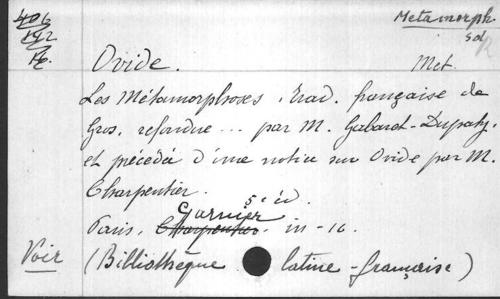 406
142
Metamorph
Ovide. Met.
Les Métamorphoses, trad. française de
Gros, refondue... par M. Gabaret-Dupaty,
et précédée d'une notice sur Ovide par M.
Charpentier.
5e éd.
Garnier
Paris, Charpentier. in-16.
Voir (Bibliothèque latine-française)